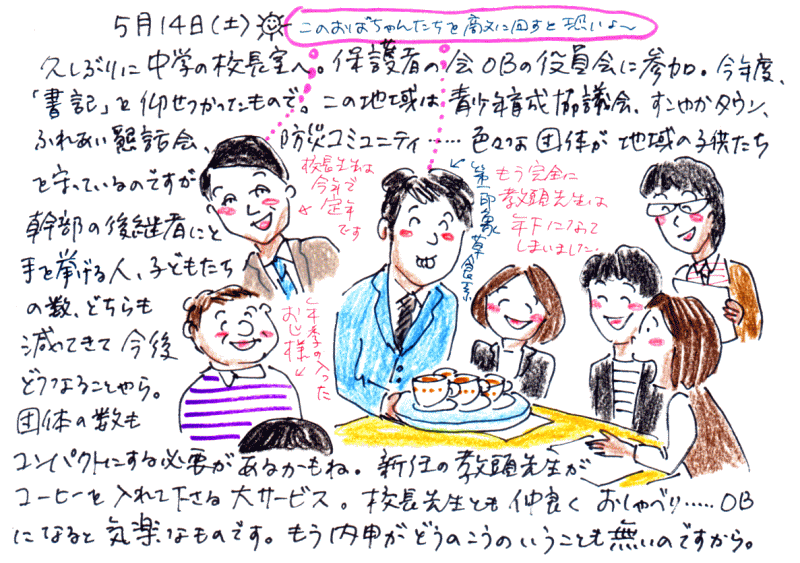 5月14日(土)
このおばちゃんたちを敵に回すと恐いよ〜
久しぶりに中学の校長室へ。保護者の会OBの役員会に参加。今年度、
「書記」を仰せつかったもので。この地域は青少年育成協議会、すこやかタウン、
ふれあい懇話会、防災コミュニティ……色々な団体が地域の子供たち
を守っているのですが
幹部の後継者にと
手を挙げる人、子どもたち
の数、どちらも
減ってきて今後
どうなることやら。
団体の数も
コンパクトにする必要があるかもね。新任の教頭先生が
コーヒーを入れて下さる大サービス。校長先生とも仲良くおしゃべり……OB
になると気楽なものです。もう内申がどうのこうのいうことも無いのですから。
校長先生は
今年で
定年
です
第一印象草食系
もう完全に
教頭先生は
年下になって
しまいました。
年季の入った
お子様